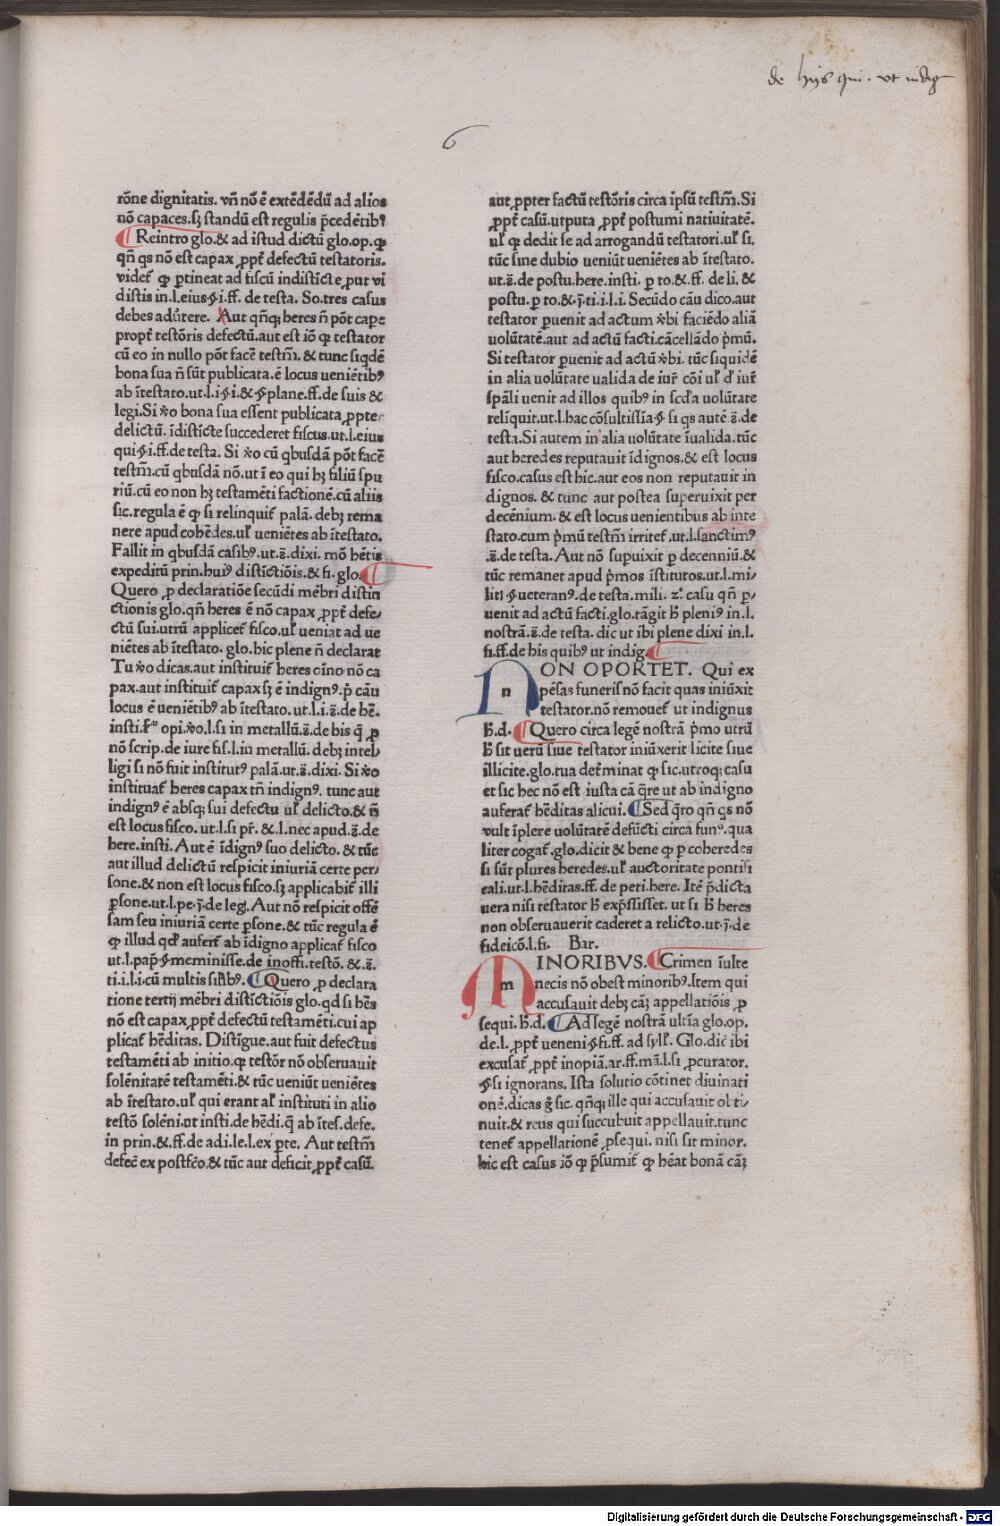 de hijs qui. vt indig
6
rõne dignitatis. vñ nõ ē extēdēdū ad alios
nõ capaces.sꝫ standū est regulis p̄cedētibꝰ
Reintro glo.& ad istud dictū glo.op. ꝙ
qñ qs nõ est capax ꝓpt̄ defectū testatoris.
videt̄ ꝙ ꝑtineat ad fiscū indisticte ,put vi
distis in.l.eius.§.i.ff. de testa. So.tres casus
debes adūtere. Aut qñqꝫ heres ñ põt cape
propt̄ testõris defectū.aut est iõ ꝙ testator
cū eo in nullo põt facē testm̄.& tunc siqdē
bona sua ñ sūt publicata.ē locus ueniētibꝰ
ab ītestato.ut.l.i.§.i.&.§.plane.ff.de suis &
legi.Si ẋo bona sua essent publicata ꝓpter
delictū. īdisticte succederet fiscus.ut.l.eius
qui.§.i.ff.de testa. Si ẋo cū qbusdā põt facē
testm̄.cū qbusdā nõ.ut ī eo qui hꝫ filiū spu
riū.cū eo non hꝫ testamēti factionē.cū aliis
sic.regula ē ꝙ si relinquit̄ palā. debꝫ rema
nere apud cohēdes.ul̄ ueniētes ab ītestato.
Fallit in qbusdā casibꝰ.ut.s̄.dixi. mõ hētis
expeditū prin.huiꝰ distictiõis.& fi. glo.
Quero ꝓ declaratiõe secūdi mēbri distin
ctionis glo.qñ heres ē nõ capax ꝓpt̄ defe/
ctū sui.utrū applicet̄ fisco.ul̄ ueniat ad ue
niētes ab ītestato. glo.hic plene ñ declarat
Tu ẋo dicas.aut instituit̄ heres oīno nõ ca
pax.aut instituit̄ capax sꝫ ē indignꝰ.p̄ cāu
locus ē ueniētibꝰ ab ītestato. ut.l.i.s̄.de hē.
nõ scrip.de iure fis.l.in metallū. debꝫ intel/
ligi si nõ fuit institutꝰ palā.ut.s̄.dixi. Si ẋo
instituat̄ heres capax tñ indignꝰ. tunc aut
indignꝰ ē absqꝫ sui defectu ul̄ delicto.& ñ
est locus fisco. ut.l.si pr̄. &.l.nec apud.s̄.de
here.insti. Aut ē īdignꝰ suo delicto. & tūc
aut illud delictū respicit iniuriā certe per/
sone.& non est locus fisco.sꝫ applicabit̄ illi
ꝑsone.ut.l.pe.j̄.de leg. Aut nõ respicit offē
sam seu iniuriā certe ꝑsone.& tūc regula ē
ꝙ illud qđ aufert̄ ab īdigno applicat̄ fisco
ut.l.pap̄.§.meminisse.de inoffi.testõ. &.s̄.
ti.i.l.i.cū multis sil̄ibꝰ. Quero ꝓ declara
tione tertij mēbri distictiõis glo.qđ si hēs
nõ est capax ꝓpt̄ defectū testamēti.cui ap
plicat̄ hēditas. Distīgue.aut fuit defectus
testamēti ab initio.ꝙ testõr nõ obseruauit
solēnitatē testamēti.& tūc ueniūt ueniētes
ab ītestato.ul̄ qui erant al̄ instituti in alio
testõ solēni.ut insti.de hēdi.q̄ ab ītes.defe.
in prin.&.ff.de adi.le.l.ex ꝑte. Aut testm̄
defec̄ ex postfc̄o.& tūc aut deficit ꝓpt̄ casū.
aut ꝓpter factū testõris circa ipsū testm̄.Si
ꝓpt̄ casū.utputa ꝓpt̄ postumi natiuitatē.
ul̄ ꝙ dedit se ad arrogandū testatori.ul̄ si.
tūc sine dubio ueniūt ueniētes ab ītestato.
ut.s̄.de postu.here.insti. ꝑ to.& ff. de li. &
postu. ꝑ to.&.j̄.ti.i.l.i. Secūdo cāu dico.aut
testator ꝑuenit ad actum ẋbi faciēdo aliā
uolūtatē.aut ad actū facti.cācellādo p̄mū.
Si testator ꝑuenit ad actū ẋbi. tūc siquidē
in alia uolūtate ualida de iur̄ cõi ul̄ đ iur̄
sp̄ali uenit ad illos quibꝰ in scđa uolūtate
relīquit.ut.l.hac cõsultissīa.§.si qs autē.s̄.de
testa.Si autem in alia uolūtate īualida.tūc
aut heredes reputauit īdignos.& est locus
fisco.casus est hic.aut eos non reputauit in
dignos. & tunc aut postea superuixit per
decēnium. & est locus uenientibus ab inte
stato.cum p̄mū testm̄ irritet̄.ut.l.sanctimꝰ
.s̄.de testa. Aut nõ supuixit ꝑ decenniū.&
tūc remanet apud p̄mos īstitutos.ut.l.mi/
liti.§.ueteranꝰ.de testa.mili. casu qñ ꝑ/
uenit ad actū facti.glo.tāgit ħ pleniꝰ in.l.
nostrā.s̄.de testa. dic ut ibi plene dixi in.l.
fi.ff.de his quibꝰ ut indig.
NON OPORTET. Qui ex
pēsas funeris nõ facit quas iniūxit
testator.nõ remouet̄ ut indignus
ħ.d. Quero circa legē nostrā p̄mo utrū
ħ sit uerū siue testator iniūxerit licite siue
illicite.glo.tua det̄minat ꝙ sic.utroqꝫ casu
et sic hec nõ est iusta cā q̄re ut ab indigno
auferat̄ hēditas alicui. Sed q̄ro qñ qs nõ
vult īplere uolūtatē defūcti circa funꝰ.qua
liter cogat̄.glo.dicit & bene ꝙ ꝑ coheredes
si sūt plures heredes.ul̄ auctoritate pontifi
cali.ut.l.hēditas.ff.de peti.here. Itē p̄dicta
uera nisi testator ħ exp̄ssisset. ut si ħ heres
non obseruauerit caderet a relicto.ut.j̄.de
fideicõ.l.fi. Bar.
MINORIBVS. Crimen īulte
necis nõ obest minoribꝰ.Item qui
accusauit debꝫ cāꝫ appellatiõis ꝓ
sequi.ħ.d. Ad legē nostrā ultīa glo.op.
de.l. ꝓpt̄ ueneni.§.fi.ff. ad syll̄. Glo.dic̄ ibi
excusat̄ ꝓpt̄ inopiā.ar.ff.mā.l.si ꝓcurator.
.§.si ignorans. Ista solutio cõtinet diuinati
onē.dicas ḡ sic. qñqꝫ ille qui accusauit obti/
nuit.& reus qui succubuit appellauit.tunc
tenet̄ appellationē ꝓsequi. nisi sit minor.
hic est casus iõ ꝙ p̄sumit̄ ꝙ hēat bonā cāꝫ
Digitalisierung gefördert durch die Deutsche Forschungsgemeinschaft - DFG